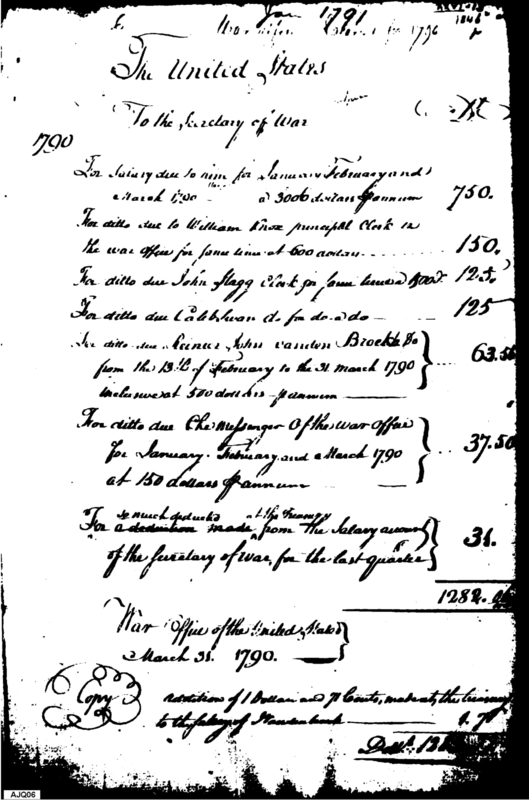 Jan 1791
1790
The United States
To the Secretary of War
Dr
1790
For Salary due to him for January February and
March 1790 a 3000 dollars ⅌ annum 750.
For ditto due to William Knox principal Clerk in
the war office for same time at 600 dollars 150.
For ditto due John Stagg Clerk for same time a 500 d. 125.
For ditto due Caleb Swan do for do a do 125
For ditto due John vanden Broek do 63.56
from the 13th of February to the 31 march 1790
inclusive at 500 dollars ⅌ annum
For ditto due the Messenger Of the War Office
for January. February and March 1790 37.50
at 150 dollars ⅌ annum
so much deducted at the Treasury
For a deduction made from the Salary account
of the Secretary of War, for the last quarter 31.
1282.06
War Office of the United States
March 31. 1790.
Copy
addition of 1 Dollar and 71 Cents, made at, the treasury
to the Salary of 1.71
Doll.
AJQ06